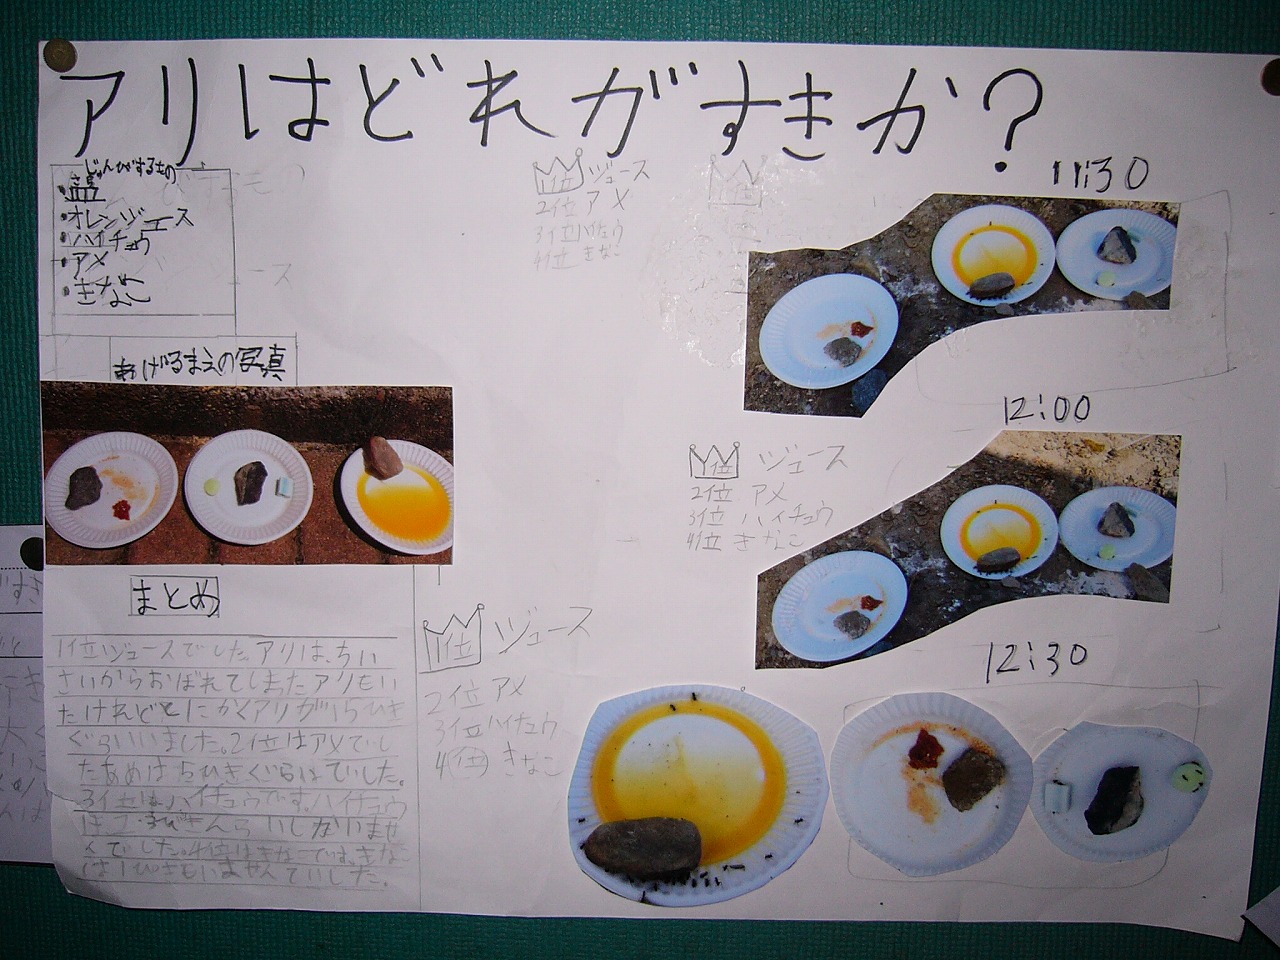 アリはどれがすきか?
じゅんびするもの
・皿
・オレンジュース
・ハイチュウ
・アメ
・きなこ
あげるまえの写真
まとめ
1位ジュースでした。アリは、ちい
さいからおぼれてしまったアリもい
たけれどとにかくアリが15ひき
ぐらいいました。2位はアメでし
たあめは5ひきぐらいでいした。
3位は、ハイチュウです。ハイチュウ
は2・3びきんらいしかいませ
んでした。4位はきなこです。きなこ
は1ぴきもいませんでいした。
1位 ジュース
2位 アメ
3位 ハイチュウ
4位 きなこ
11:30
1位 ジュース
2位 アメ
3位 ハイチュウ
4位 きなこ
12:00
1位 ジュース
2位 アメ
3位 ハイチュウ
4位 きなこ
12:30